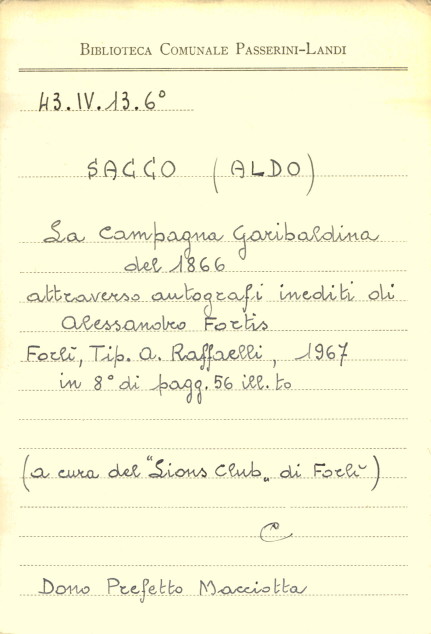 BIBLIOTECA COMUNALE PASSERINI-LANDI
43.IV.13.6°
SAGGO (ALDO)
La Campagna Garibaldina
del 1866
attraverso autografi inediti di
Alessandro Fortis
Forlì, Tip. A. Raffaelli, 1967
in 8° di pagg. 56 ill.to
(a cura del "Lions Club„ di Forlì)
C
Dono Prefetto Macciotta